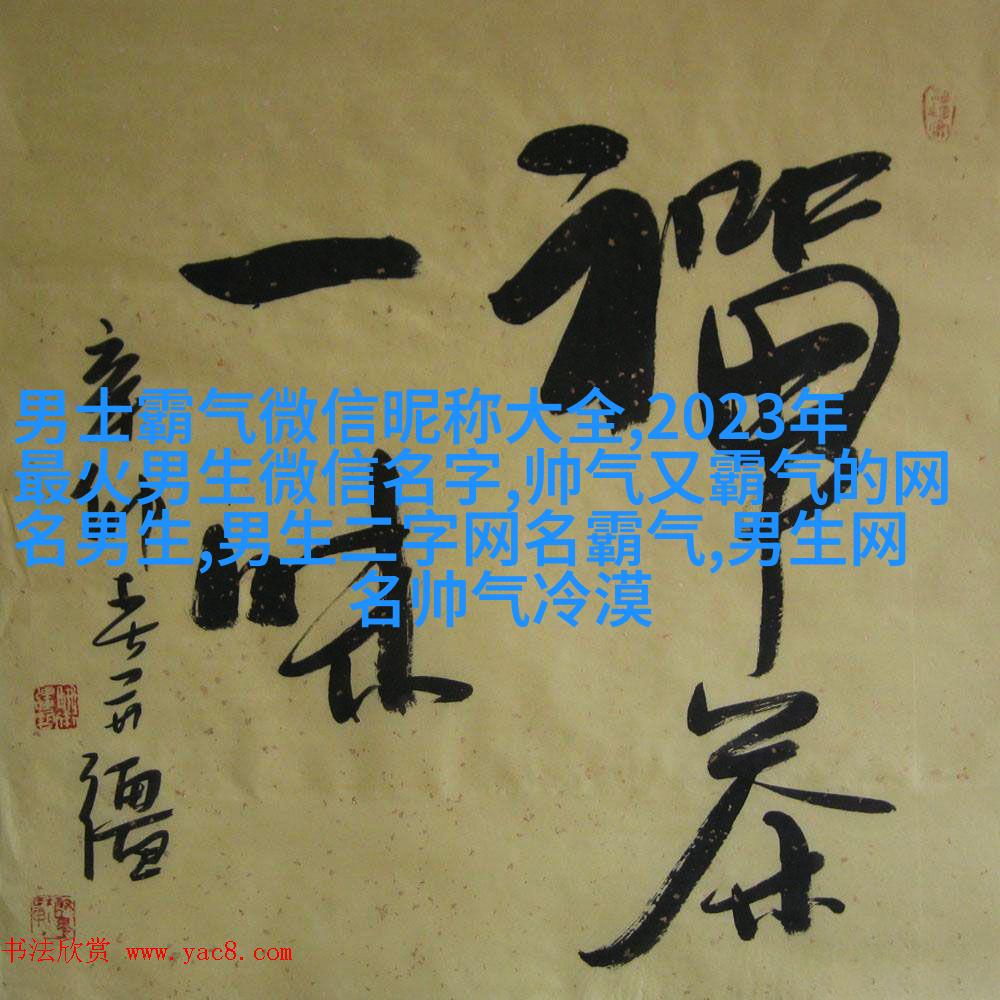 禪茶
一味
男士霸气微信昵称大全,2023年
最火男生微信名字,帅气又霸气的网
名男生,男生二字网名霸气,男生网
名帅气冷漠
书法欣赏 www.yac8.com